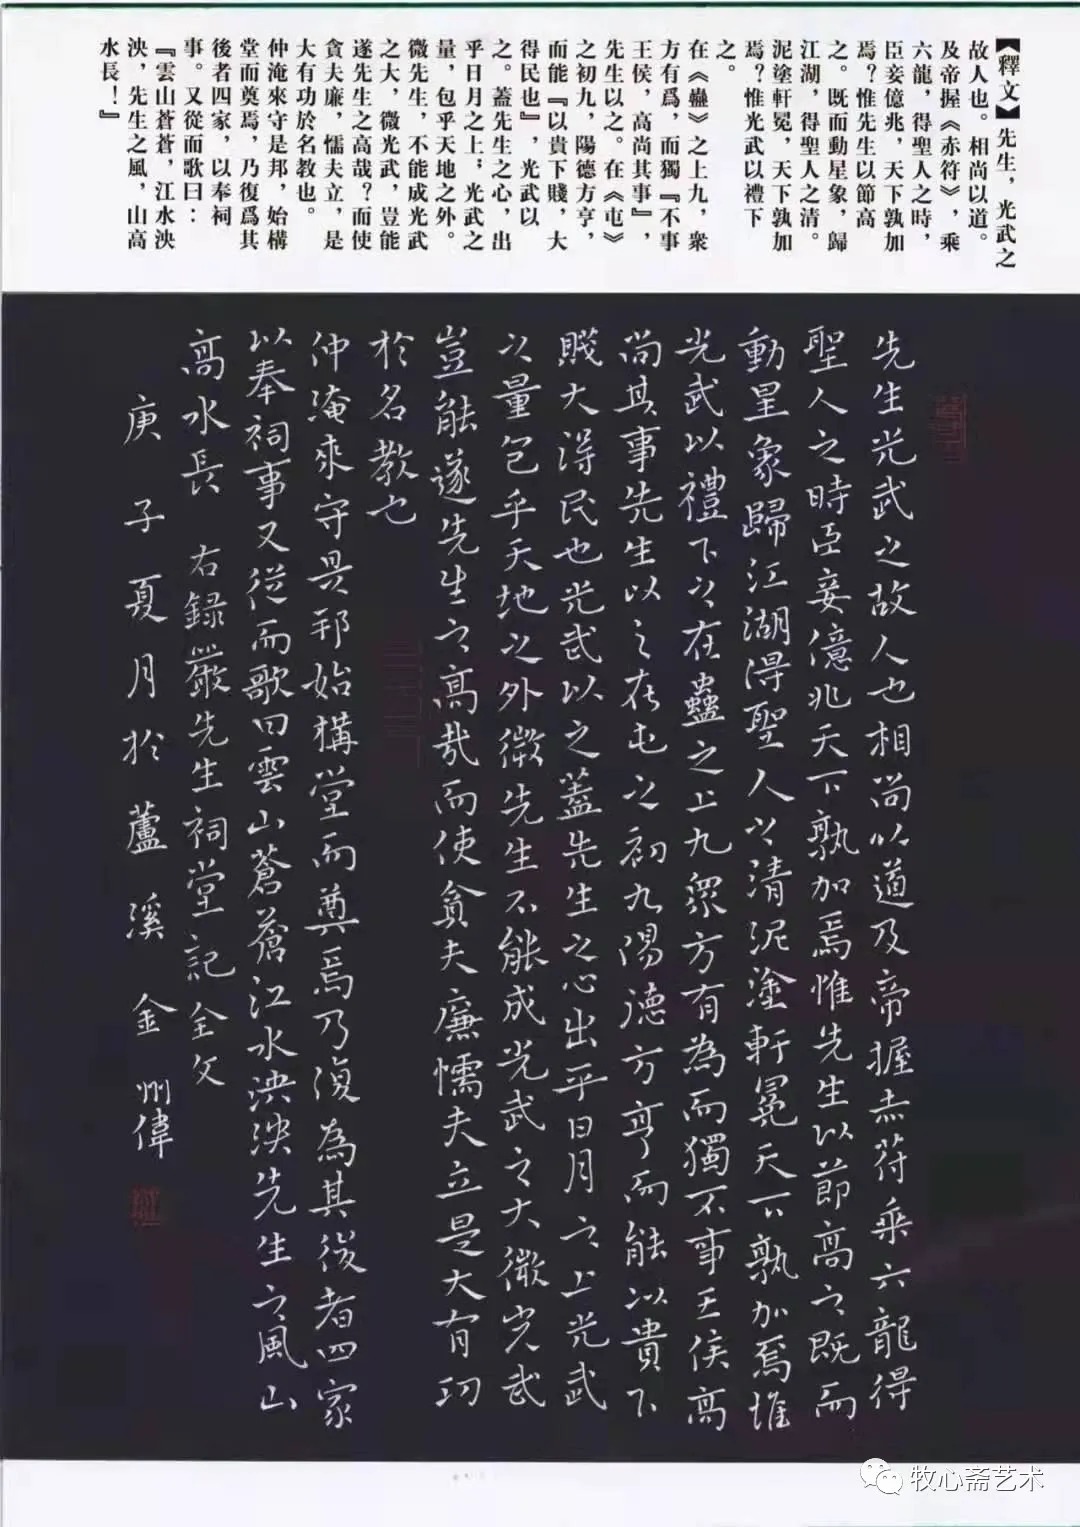 【釋文】先生，光武之
故人也。相尚以道。
及帝握《赤符》，乘
六龍，得聖人之時，
臣妾億兆，天下孰加
焉？惟先生以節高
之。既而動星象，歸
江湖，得聖人之清。
泥塗軒冕，天下孰加
焉？惟光武以禮下
之。
在《蠱》之上九，衆
方有爲，而獨『不事
王侯，高尚其事』，
先生以之。在《屯》
之初九，陽德方亨，
而能『以貴下賤，大
得民也』，光武以
之。蓋先生之心，出
乎日月之上；光武之
量，包乎天地之外。
微先生，不能成光武
之大，微光武，豈能
遂先生之高哉？而使
貪夫廉，懦夫立，是
大有功於名教也。
仲淹來守是邦，始構
堂而奠焉，乃復爲其
後者四家，以奉祠
事。又從而歌曰：
『雲山蒼蒼，江水泱
泱，先生之風，山高
水長！』
先生光武之故人也相尚以道及帝握赤符乘六龍得
聖人之時臣妾億兆天下孰加焉惟先生以節高之既而
動星象歸江湖得聖人之清泥塗軒冕天下孰加焉惟
光武以禮下之在蠱之上九衆方有為而獨不事王侯高
尚其事先生以之在屯之初九陽德方亨而能以貴下
賤大得民也光武以之蓋先生之心出乎日月之上光武
之量包乎天地之外微先生不能成光武之大微光武
豈能遂先生之高哉而使貪夫廉懦夫立是大有功
於名教也
仲淹來守是邦始構堂而奠焉乃復為其後者四家
以奉祠事又從而歌曰雲山蒼蒼江水泱泱先生之風山
高水長 右録嚴先生祠堂記全文
庚子夏月於蘆溪金州偉
牧心斋艺术